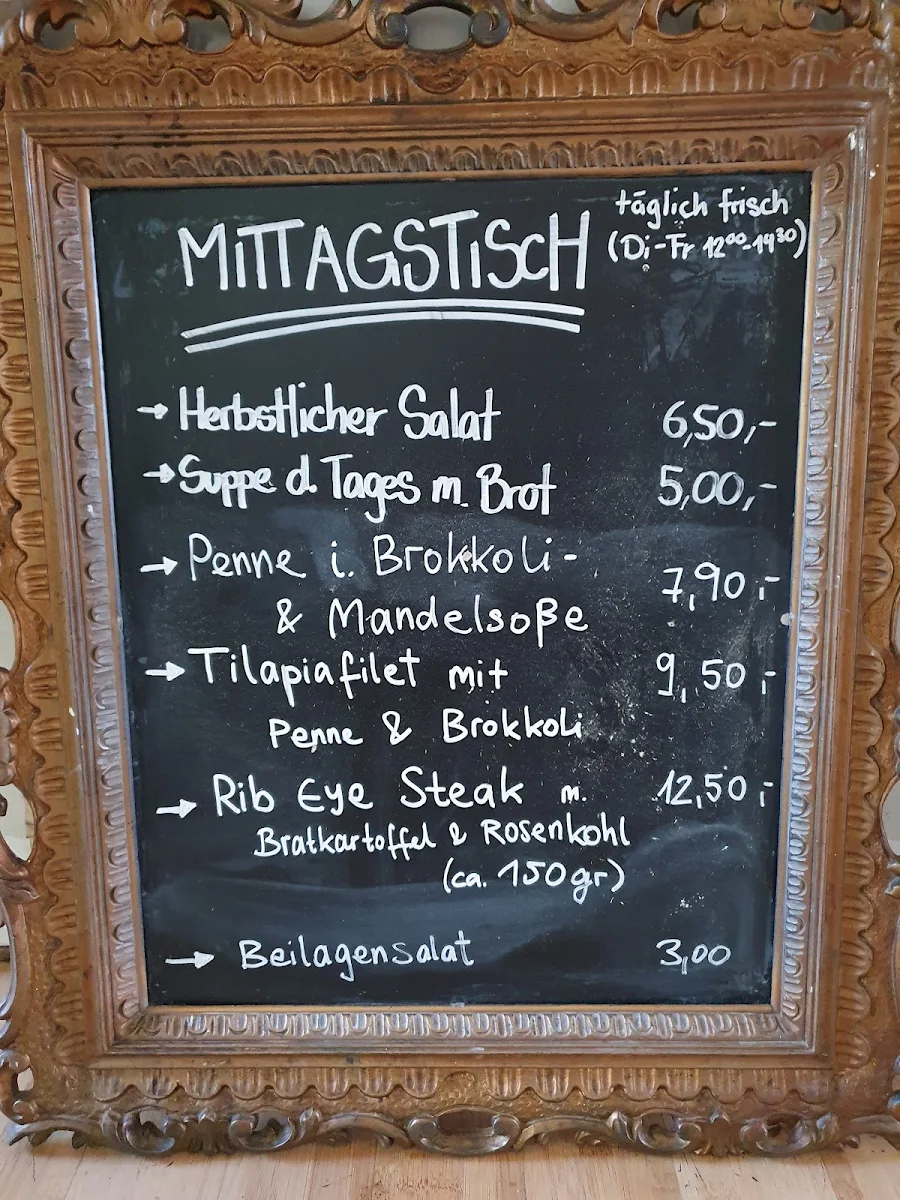 MITTAGSTISCH
täglich frisch
(Di-Fr 12⁰⁰-14³⁰)
→ Herbstlicher Salat 6,50,-
→ Suppe d. Tages m. Brot 5,00,-
→ Penne i. Brokkoli- 7,90,-
& Mandelsoße
→ Tilapiafilet mit 9,50,-
Penne & Brokkoli
→ Rib Eye Steak m. 12,50,-
Bratkartoffel & Rosenkohl
(ca. 150gr)
→ Beilagensalat 3,00